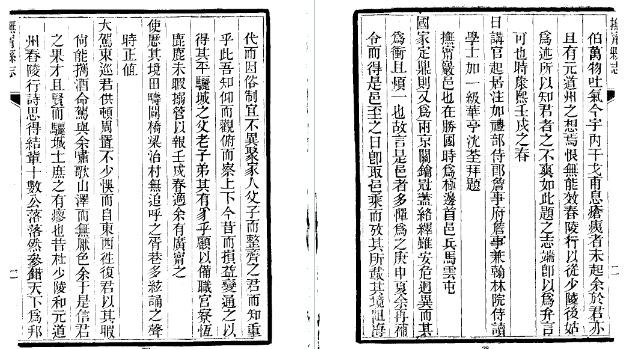 撫甯縣志
伯萬物吐氣今宇內干戈甫息瘡痍者未起余於君亦
且有元道州之想焉恨無能效舂陵行以從少陵後姑
爲述所以知君者之不爽如此題之志端卽以爲弁言
可也時康熙壬戌之春
日講官起居注加禮部侍郎詹事府詹事兼翰林院侍讀
學士加一級華亭沈荃拜題
撫甯嚴邑也在勝國時爲極邊首邑兵馬雲屯
國家定鼎則又爲兩京關鑰冠蓋絡繹雖安危迥異而其
爲衝且煩一也故言是邑者多憚爲之庚申夏余再補
令而得是邑至之日卽取邑乘而攷其所載其境阻海
代而因俗制宜不異聚家人父子而整齊之君而知重
乎此吾知仰而觀俯而察上下今昔而損益變通之以
得其平驪城之父老子弟其有豸乎顧以備職宮寮恆
鹿鹿未暇搦管以報壬戌春適余有廣甯之
使歷其境田疇闢橋梁治村無追呼之胥巷多絃誦之聲
時正值
大駕東巡君供頓異置不少悞而自東西徃復君以其暇
何能攜酒命駕與余嘯歌山澤而無厭色余于是信君
之果才且賢而驪城士庶之有瘳也昔杜少陵和元道
州舂陵行詩思得結輩十數公落落然參錯天下爲邦
撫甯縣志